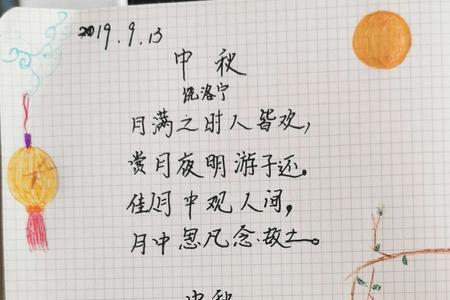 2019.9.13
中秋
饶洛宁
月满之时人皆欢,
赏月夜明游子还。
佳月中观人间,
月中思凡念故土。
中秋